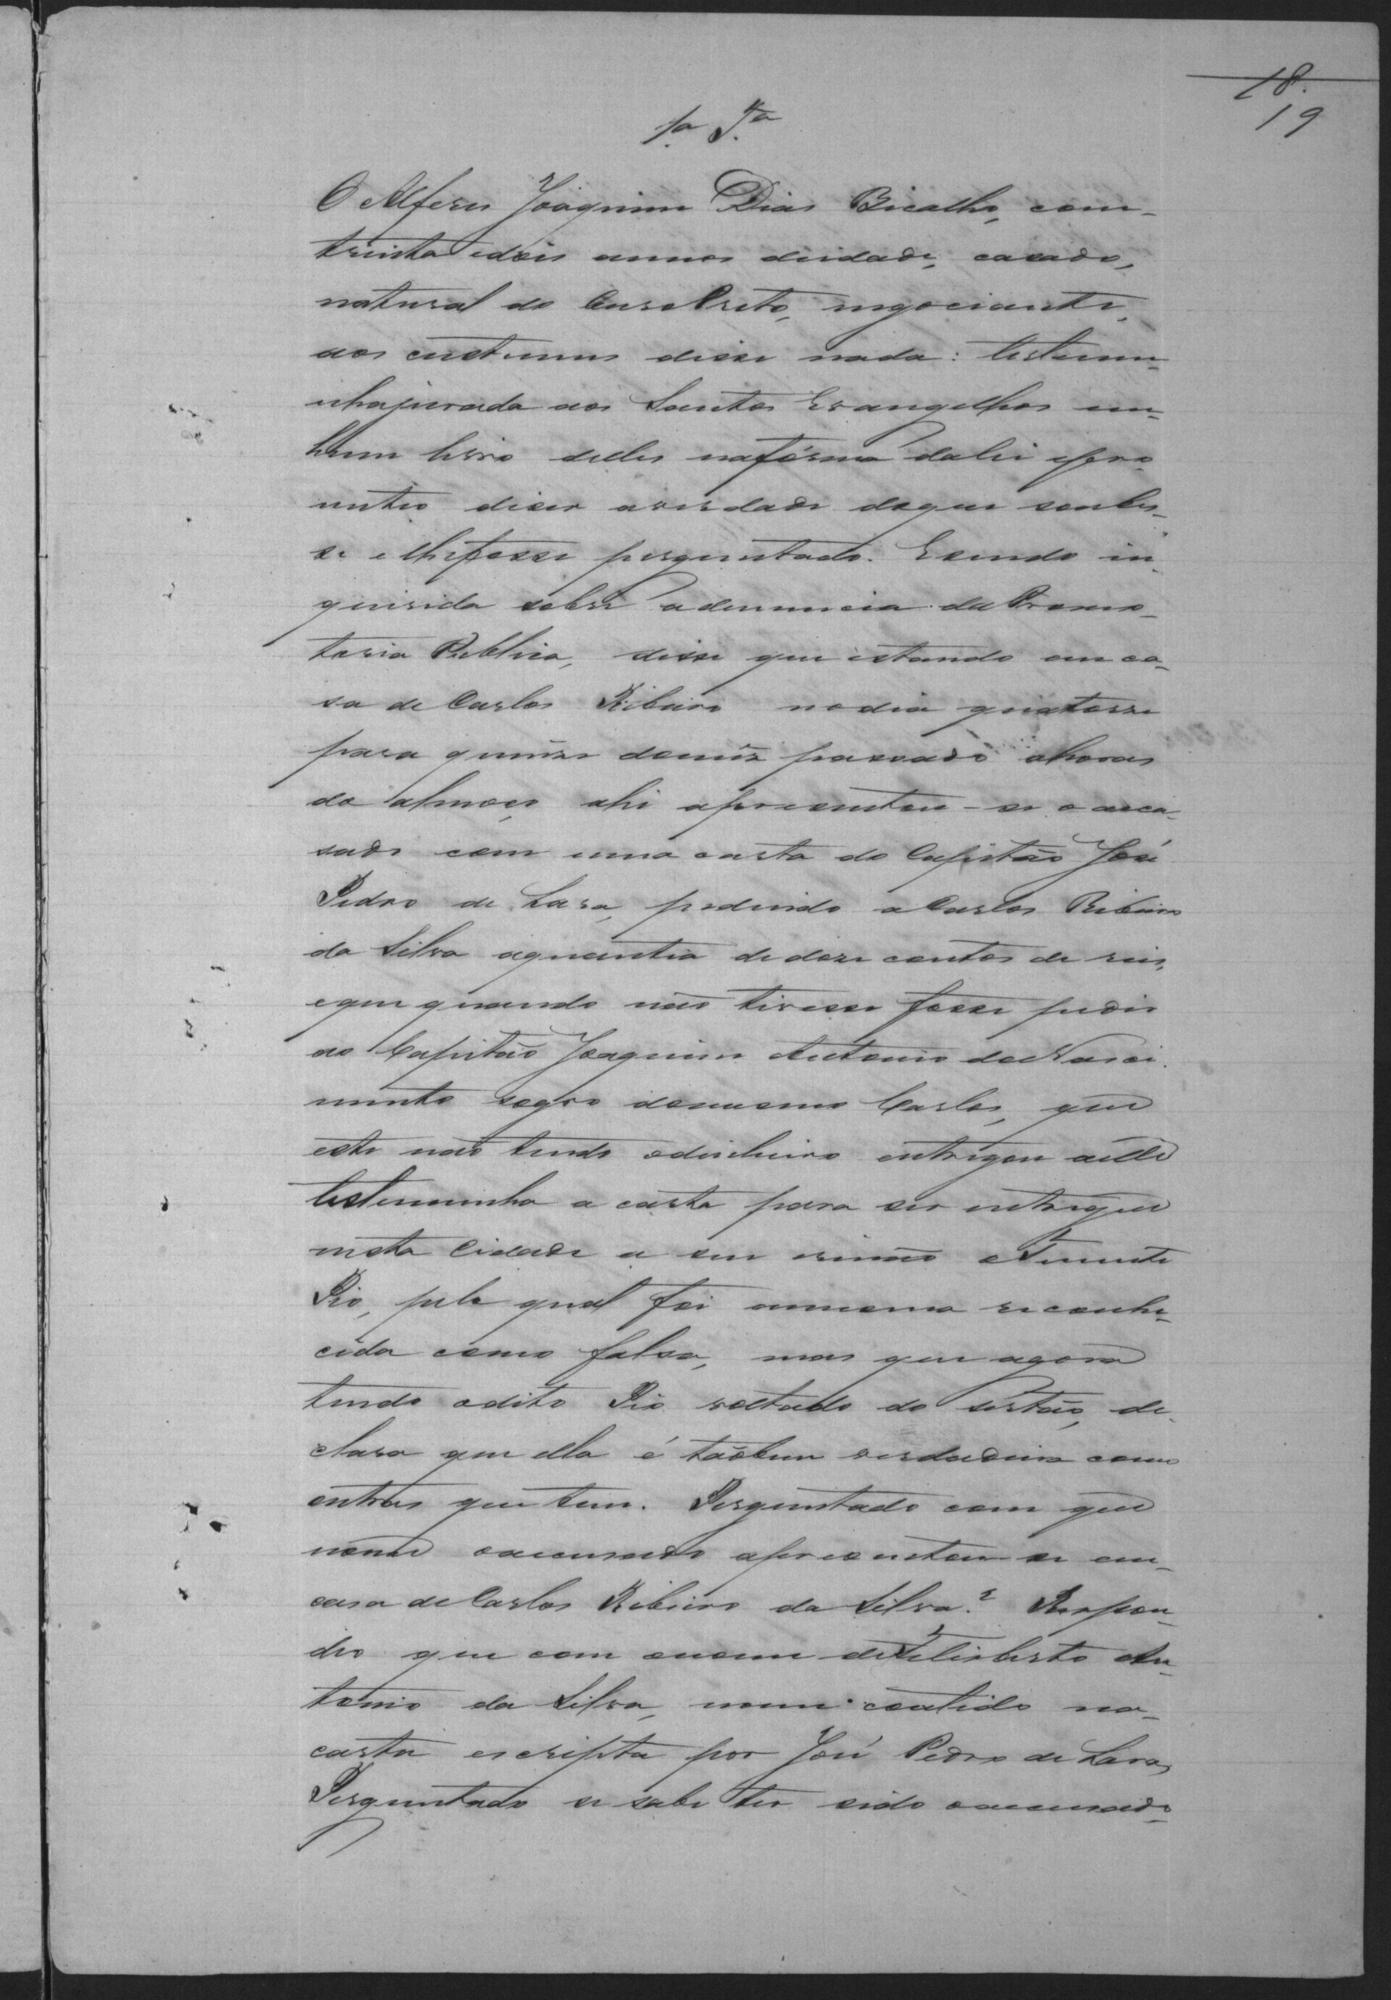 18.
19
1ª Tª
O Alferes Joaquim Dias Bicalho, com
trinta edois annos deidade, casado,
natural do Ouro Preto, negociante,
aos custumes disse nada: testemu-
nhajurada aos Santos Evangelhos em
hum livro delles naforma dalei epro
metteo diser averdade doque soubes-
se elhefosse perguntado. Esendo in-
querida sobre adenuncia da Promo-
toria Publica, disse que estando em ca-
sa de Carlos Ribeiro nodia quatorze
para quinze domez passado ahoras
do almoço ahi apresentou-se o accu-
sado com uma carta do Capitão José
Pedro de Lara, pedindo aCarlos Ribeiro
da Silva aquantia dedoze contos de reis,
eque quando não tivesse fosse pedir
ao Capitão Joaquim Antonio doNasci-
mento sogro domesmo Carlos, que
este não tendo odinheiro entregou aelle
testemunha a carta para ser entregue
nesta Cidade a seu irmão oTenente
Pio, pelo qual foi amesma reconhe-
cida como falsa, mas que agora
tendo odito Pio voltado do sertão, de-
clara que ella é tãobem verdadeira como
outras que tem. Perguntado com que
nome oaccusado apresentou-se em
casa deCarlos Ribeiro da Silva? Respon-
deo que com onome deFelisberto An-
tonio da Silva, nome contido na
carta escripta por José Pedro de Lara,
Perguntado se sabe ter sido oaccusado